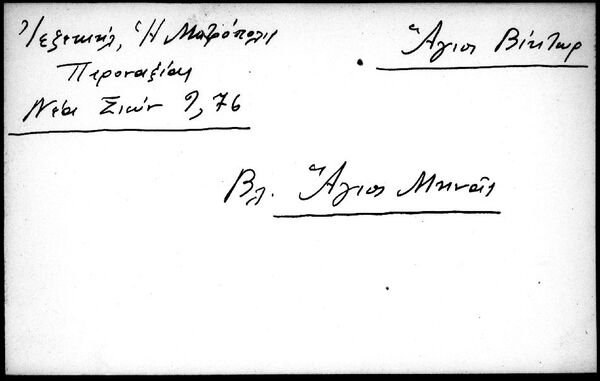 Ἰεζεκιήλ, Ἡ Μητρόπολις
Παροναξίας
Νέα Σιών 9, 76
Ἅγιος Βίκτωρ
Βλ. Ἅγιος Μηνᾶς